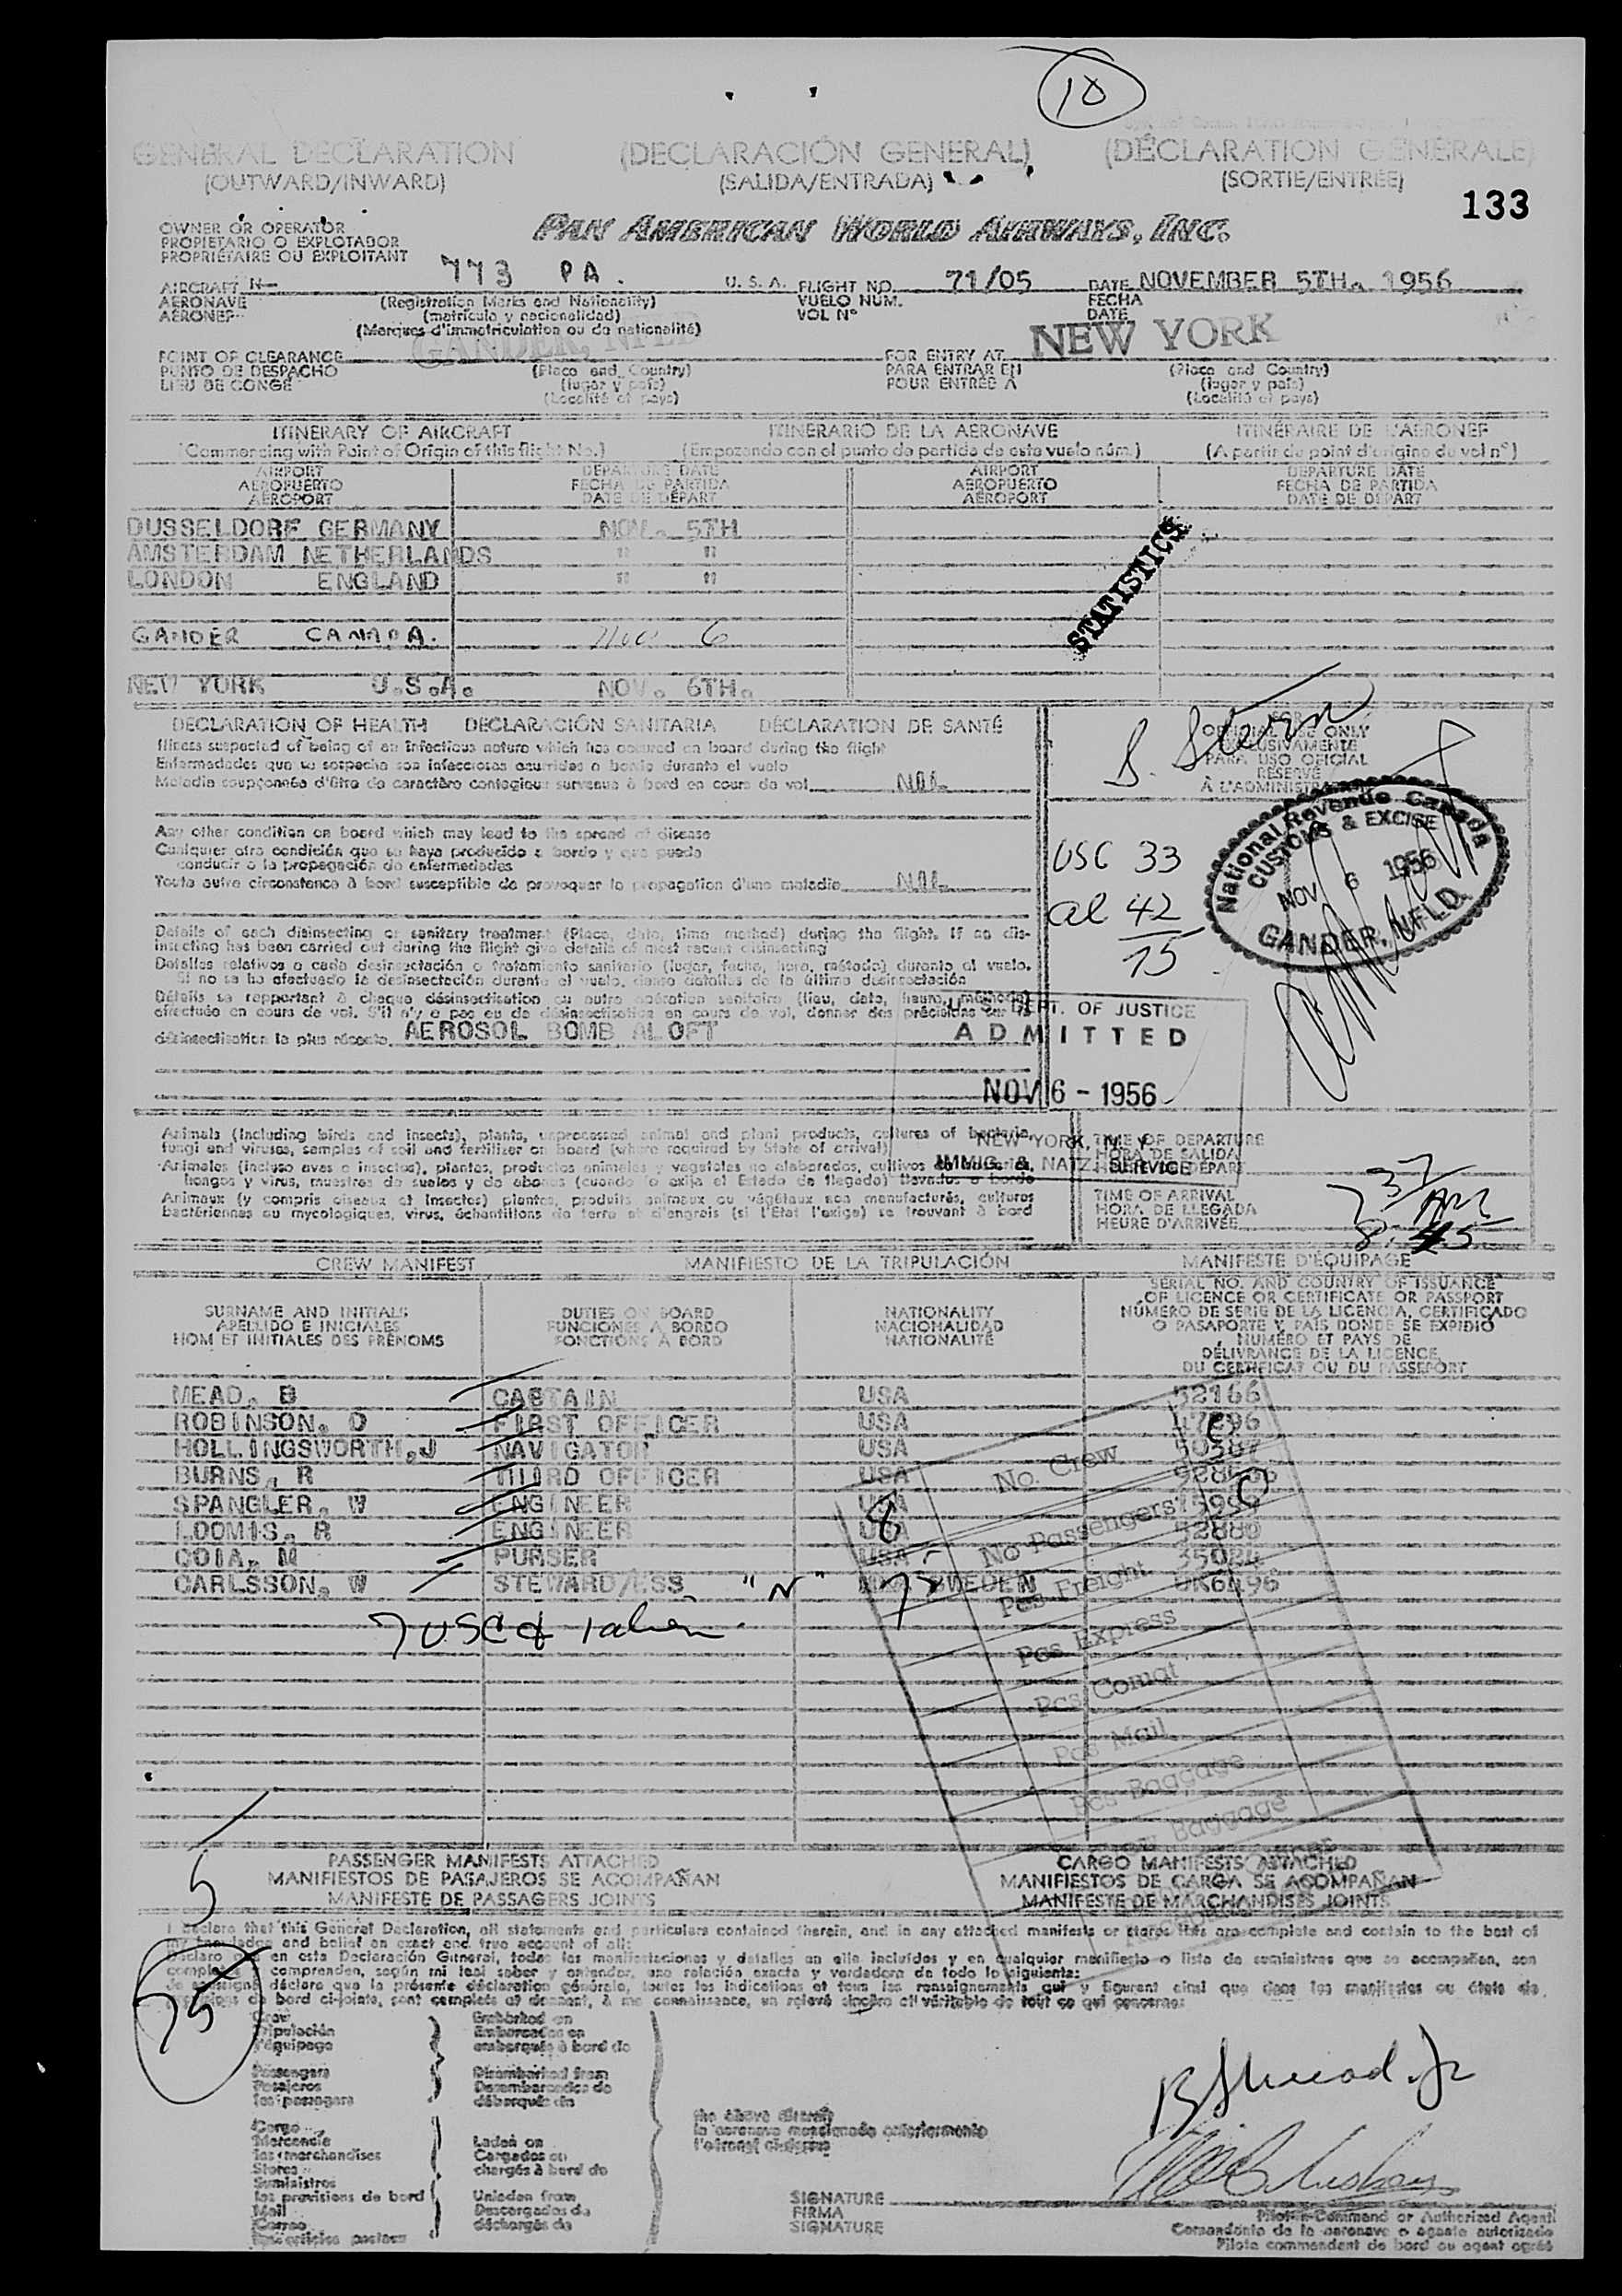 10
GENERAL DECLARATION (DECLARACIÓN GENERAL) (DÉCLARATION GÉNÉRALE)
(OUTWARD/INWARD) (SALIDA/ENTRADA) (SORTIE/ENTRÉE)
133
OWNER OR OPERATOR
PROPIETARIO O EXPLOTADOR
PROPRIÉTAIRE OU EXPLOITANT
PAN AMERICAN WORLD AIRWAYS, INC.
AIRCRAFT N- 773 PA. U. S. A. FLIGHT NO. 71/05 DATE NOVEMBER 5TH. 1956
AERONAVE (Registration Marks and Nationality) VUELO NÚM. FECHA
AÉRONEF (matrícula y nacionalidad) VOL Nº DATE
(Marques d'immatriculation ou de nationalité)
GANDER, NFLD NEW YORK
POINT OF CLEARANCE FOR ENTRY AT
PUNTO DE DESPACHO (Place and Country) PARA ENTRAR EN (Place and Country)
LIEU DE CONGÉ (lugar y país) POUR ENTRÉE À (lugar y país)
(Localité et pays) (Localité et pays)
ITINERARY OF AIRCRAFT ITINERARIO DE LA AERONAVE ITINÉRAIRE DE L'AÉRONEF
(Commencing with Point of Origin of this flight No.) (Empezando con el punto de partida de este vuelo núm.) (A partir de point d'origine du vol nº)
AIRPORT DEPARTURE DATE AIRPORT DEPARTURE DATE
AEROPUERTO FECHA DE PARTIDA AEROPUERTO FECHA DE PARTIDA
AÉROPORT DATE DE DÉPART AÉROPORT DATE DE DÉPART
DUSSELDORF GERMANY NOV. 5TH
AMSTERDAM NETHERLANDS " "
LONDON ENGLAND " "
STATISTICS
GANDER CANADA. Nov 6
NEW YORK U.S.A. NOV. 6TH.
DECLARATION OF HEALTH DECLARACIÓN SANITARIA DÉCLARATION DE SANTÉ
Illness suspected of being of an infectious nature which has occured on board during the flight
Enfermedades que se sospecha son infecciosas ocurridas a bordo durante el vuelo
Maladie soupçonnée d'être de caractère contagieux survenue à bord en cours de vol NIL
FOR
OFFICIAL USE ONLY
EXCLUSIVAMENTE
PARA USO OFICIAL
RÉSERVÉ
À L'ADMINISTRATION
Any other condition on board which may lead to the spread of disease
Cualquier otra condición que se haya producido a bordo y que pueda
conducir a la propagación de enfermedades
Toute autre circonstance à bord susceptible de provoquer la propagation d'une maladie NIL
USC 33
al 42
75
National Revenue Canada
CUSTOMS & EXCISE
NOV 6 1956
GANDER, NFLD.
Details of each disinsecting or sanitary treatment (Place, date, time method) during the flight. If no dis-
insecting has been carried out during the flight give details of most recent disinsecting
Detalles relativos a cada desinsectación o tratamiento sanitario (lugar, fecha, hora, método) durante el vuelo.
Si no se ha efectuado la desinsectación durante el vuelo, denso detalles de la última desinsectación
Détails se rapportant à chaque désinsectisation ou autre opération sanitaire (lieu, date, heure, méthode)
effectuée en cours de vol. S'il n'y a pas eu de désinsectisation en cours de vol, donner des précisions sur la
désinsectisation la plus récente AEROSOL BOMB ALOFT
U. S. DEPT. OF JUSTICE
ADMITTED
NOV 6 - 1956
NEW YORK, N. Y.
IMMIG. & NATZ. SERVICE
Animals (including birds and insects), plants, unprocessed animal and plant products, cultures of bacteria,
fungi and viruses, samples of soil and fertilizer on board (where required by State of arrival)
Animales (incluso aves e insectos), plantas, productos animales y vegetales no elaborados, cultivos de bacterias,
hongos y virus, muestras de suelos y de abonos (cuando lo exija el Estado de llegada) llevados a bordo
Animaux (y compris oiseaux et insectes) plantes, produits animaux ou végétaux non manufacturés, cultures
bactériennes ou mycologiques, virus, échantillons de terre et d'engrais (si l'État l'exige) se trouvant à bord
TIME OF DEPARTURE
HORA DE SALIDA
HEURE DE DÉPART
TIME OF ARRIVAL
HORA DE LLEGADA
HEURE D'ARRIVÉE
CREW MANIFEST MANIFIESTO DE LA TRIPULACIÓN MANIFESTE D'ÉQUIPAGE
SURNAME AND INITIALS DUTIES ON BOARD NATIONALITY SERIAL NO. AND COUNTRY OF ISSUANCE
APELLIDO E INICIALES FUNCIONES A BORDO NACIONALIDAD OF LICENCE OR CERTIFICATE OR PASSPORT
NOM ET INITIALES DES PRÉNOMS FONCTIONS À BORD NATIONALITÉ NÚMERO DE SERIE DE LA LICENCIA, CERTIFICADO
O PASAPORTE Y PAÍS DONDE SE EXPIDIÓ
NUMÉRO ET PAYS DE
DÉLIVRANCE DE LA LICENCE,
DU CERTIFICAT OU DU PASSEPORT
MEAD, B CAPTAIN USA 52166
ROBINSON, D FIRST OFFICER USA
HOLLINGSWORTH, J NAVIGATOR USA 50387
BURNS, R THIRD OFFICER USA
SPANGLER, W ENGINEER USA
LOOMIS, R ENGINEER USA
COIA, M PURSER USA
CARLSSON, W STEWARD/ESS "N" SWEDEN
8
7 USC
No. Crew
No Passengers 75
Pcs Freight
Pcs Express
Pcs Comat
Pcs Mail
Pcs Baggage
Baggage
PASSENGER MANIFESTS ATTACHED CARGO MANIFESTS ATTACHED
MANIFIESTOS DE PASAJEROS SE ACOMPAÑAN MANIFIESTOS DE CARGA SE ACOMPAÑAN
MANIFESTE DE PASSAGERS JOINTS MANIFESTE DE MARCHANDISES JOINTS
5
I declare that this General Declaration, all statements and particulars contained therein, and in any attached manifests or stores lists are complete and contain to the best of
my knowledge and belief an exact and true account of all:
Declaro que en esta Declaración General, todas las manifestaciones y detalles en ella incluidos y en cualquier manifiesto o lista de suministros que se acompañan, son
completos y comprenden, según mi leal saber y entender, una relación exacta y verdadera de todo lo siguiente:
Je soussigné déclare que la présente déclaration générale, toutes les indications et tous les renseignements qui y figurent ainsi que dans les manifestes ou états de
provisions de bord ci-joints, sont complets et donnent, à ma connaissance, un relevé sincère et véritable de tout ce qui concerne:
75
Crew Embarked on
Tripulación Embarcados en
l'équipage embarqués à bord de
Passengers Disembarked from
Pasajeros Desembarcados de
les passagers débarqués de
the above aircraft
la aeronave mencionada anteriormente
l'aéronef ci-dessus
Cargo
Mercancía Laden on
les marchandises Cargados en
Stores chargés à bord de
Suministros
les provisions de bord Unladen from
Mail Descargados de
Correo déchargés de
SIGNATURE
FIRMA
SIGNATURE
Pilot-in-Command or Authorized Agent
Comandante de la aeronave o agente autorizado
Pilote commandant de bord ou agent agréé